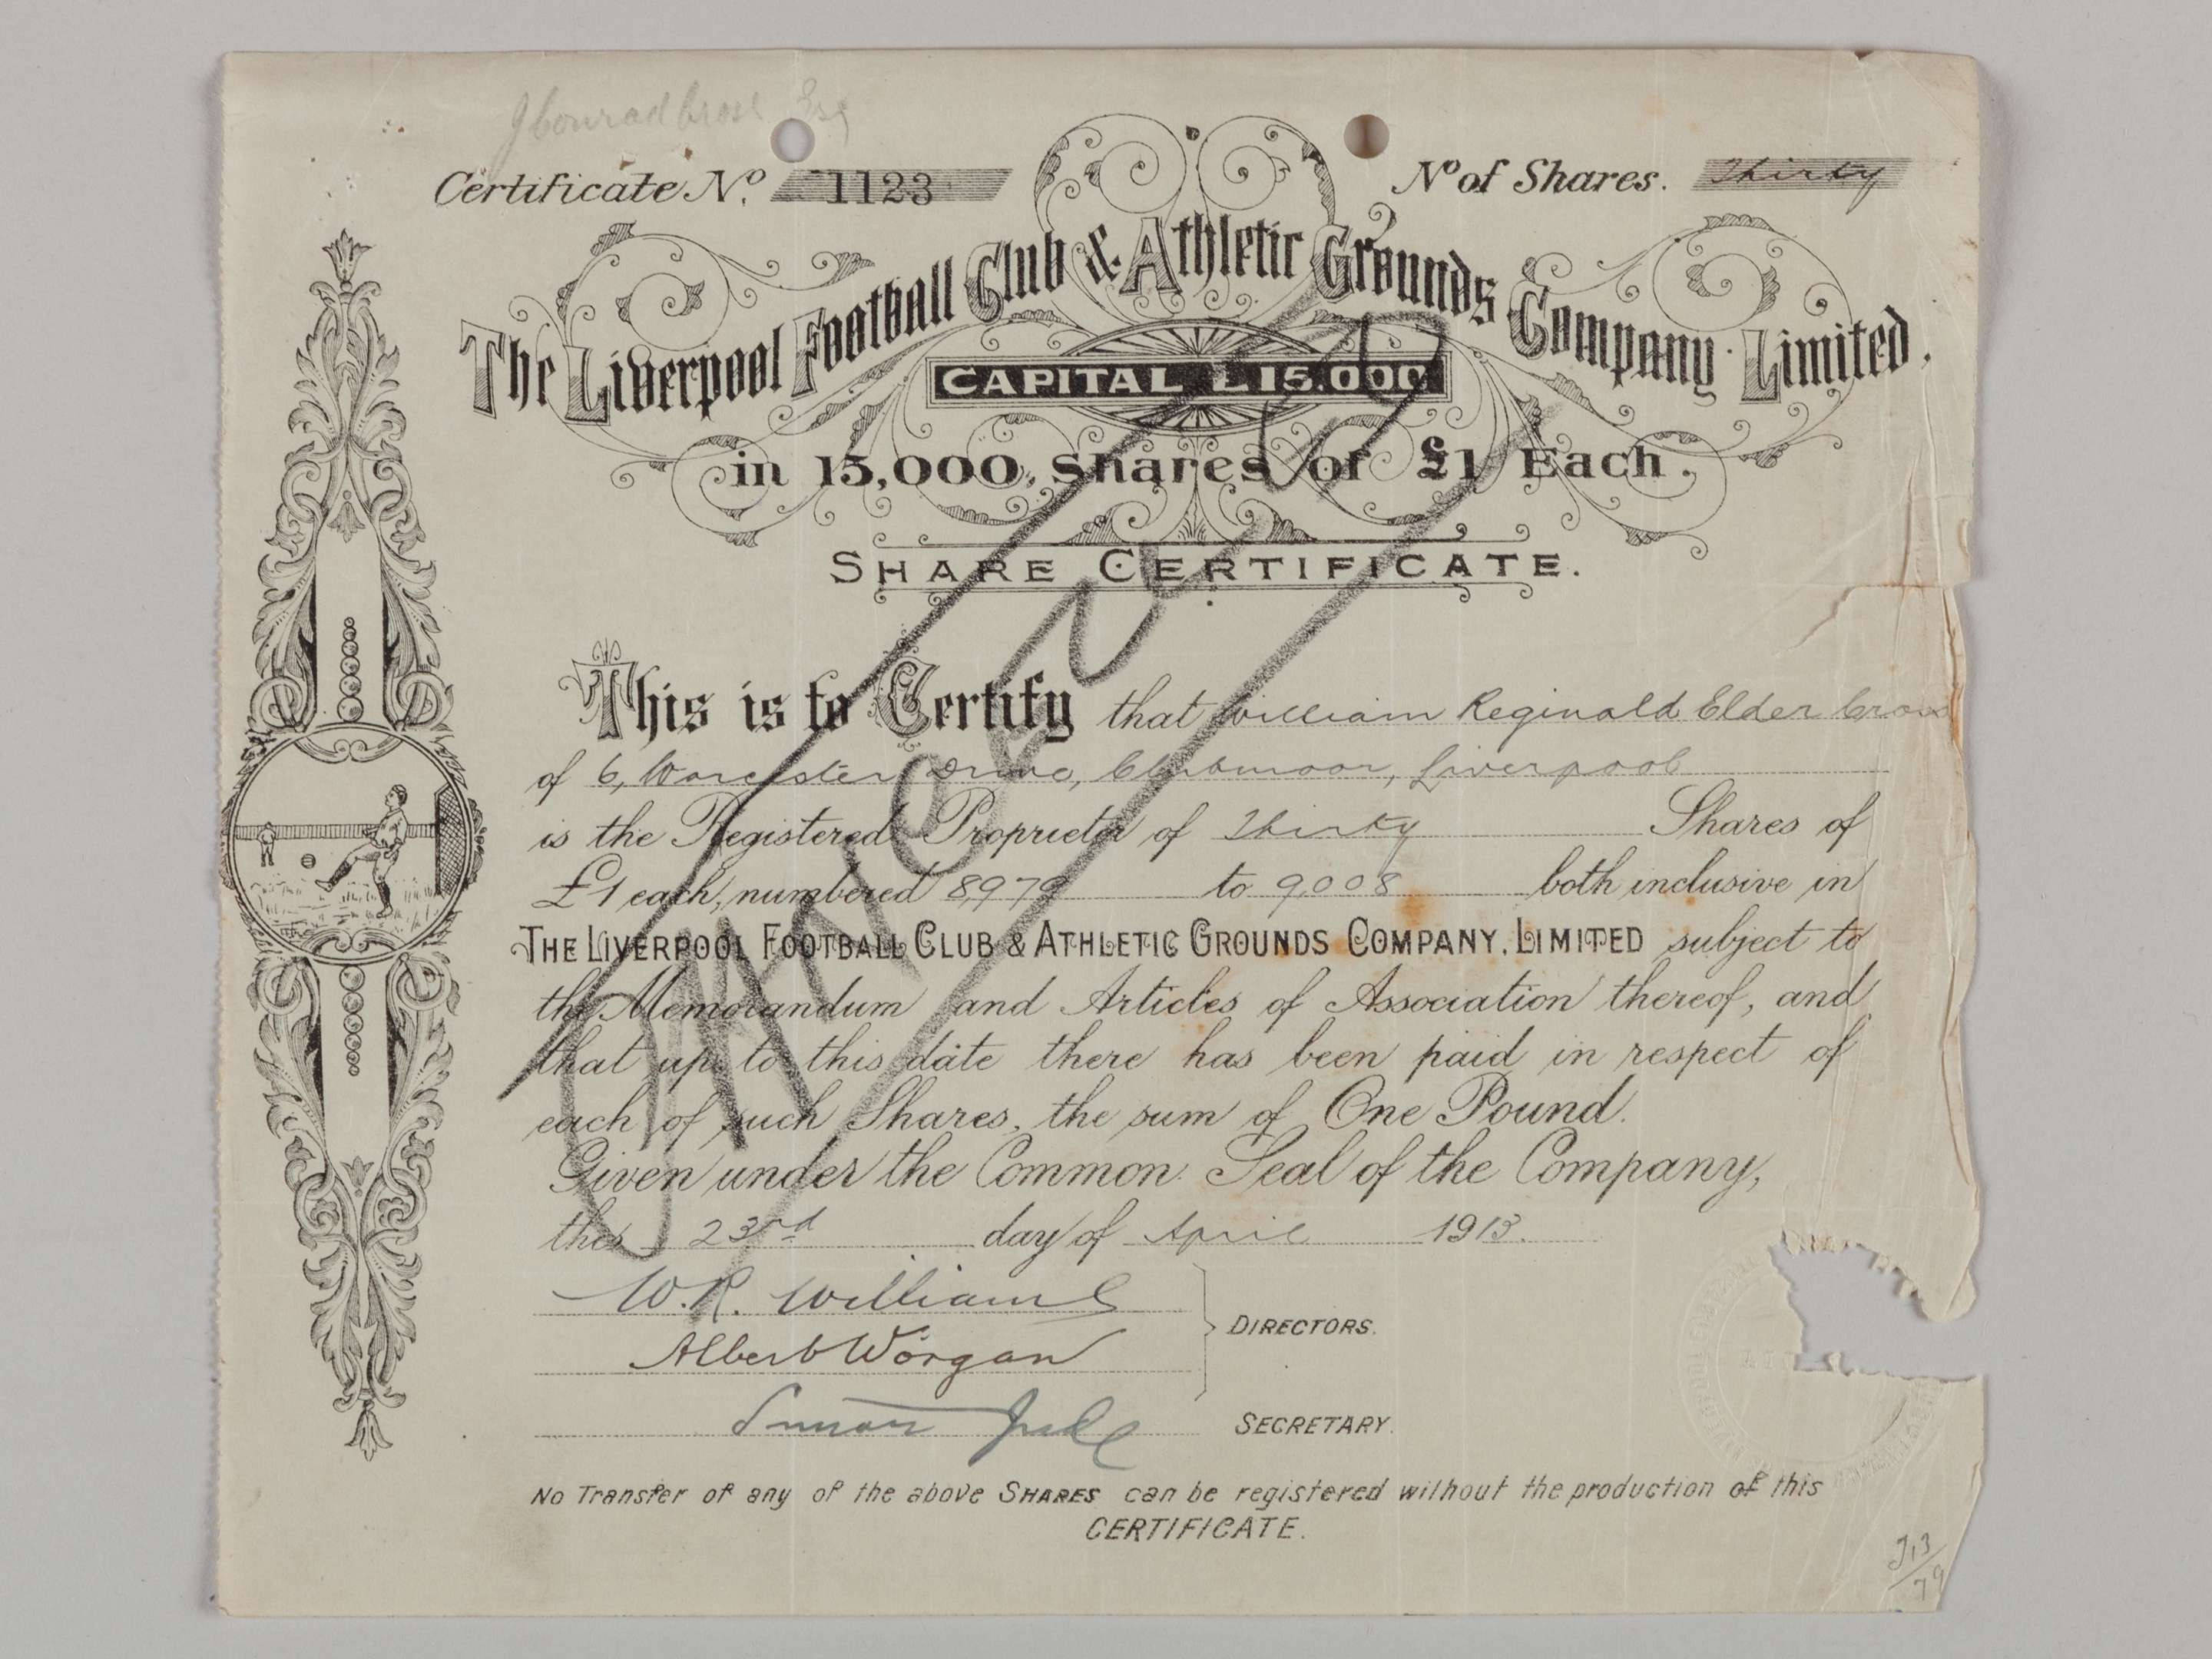 J Conrad Cross Esq
Certificate No. 1123
No of Shares. Thirty
The Liverpool Football Club & Athletic Grounds Company Limited.
CAPITAL £15.000
in 15,000, shares of £1 Each.
SHARE CERTIFICATE.
CANCELLED
This is to Certify that William Reginald Elder
of 6, Worcester Drive, Clubmoor, Liverpool
is the Registered Proprietor of Thirty Shares of
£1 each, numbered 8979 to 9,008 both inclusive in
THE LIVERPOOL FOOTBALL CLUB & ATHLETIC GROUNDS COMPANY, LIMITED subject to
the Memorandum and Articles of Association thereof, and
that up to this date there has been paid in respect of
each of such Shares, the sum of One Pound.
Given under the Common Seal of the Company,
this 23rd day of April 1913.
W.R. Williams
Albert Worgan
DIRECTORS.
SECRETARY.
No Transfer of any of the above SHARES can be registered without the production of this
CERTIFICATE.
J13
79